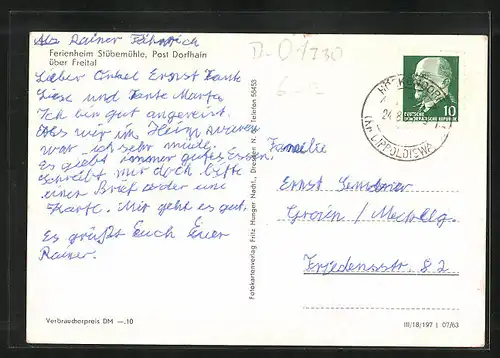 Abs Rainer
Ferienheim Stübemühle, Post Dorfhain
über Freital
Lieber Onkel Ernst Tante
Liese und Tante Marta
Ich bin gut angereist.
Als wir im Heim waren
war ich sehr müde.
Es giebt immer gutes Essen.
Schreibt mir doch bitte
einen Brief oder eine
Karte. Mir geht es gut.
Es grüßt Euch Euer
Rainer.
Verbraucherpreis DM —.10
Fotokartenverlag Fritz Hunger Nachf., Dresden N, Telefon 55453
D-01738
DEUTSCHE
DEMOKRATISCHE REPUBLIK
10
Familie
Ernst
Gnoien / Mecklbg.
Friedensstr. 82
III/18/197 | 07/63